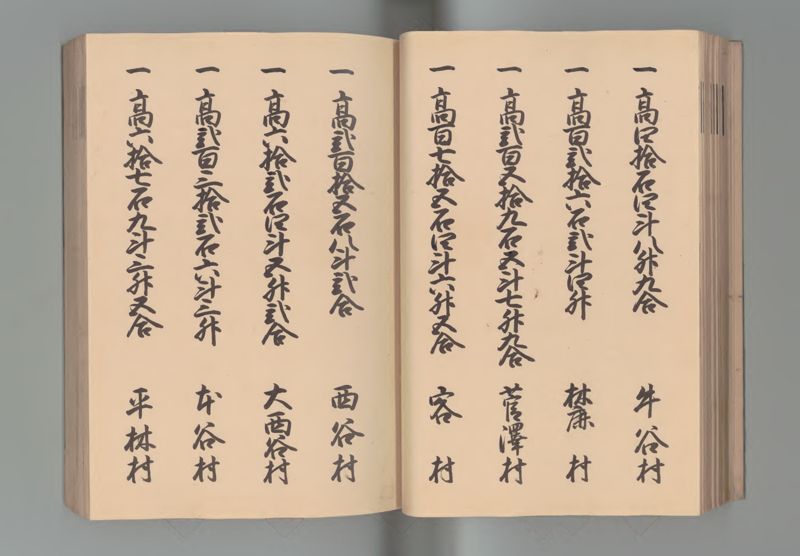 一 高四拾石四斗八升九合 牛谷村
一 高百弐拾六石弐斗四升 林 村
一 高弐百五拾九石五斗七升九合 菅澤村
一 高百七拾五石四斗六升五合 容 村
一 高弐百拾五石八斗弐合 西谷村
一 高六拾弐石四斗五升弐合 大西谷村
一 高弐百三拾弐石六斗三升 本谷村
一 高六拾七石九斗三升五合 平林村